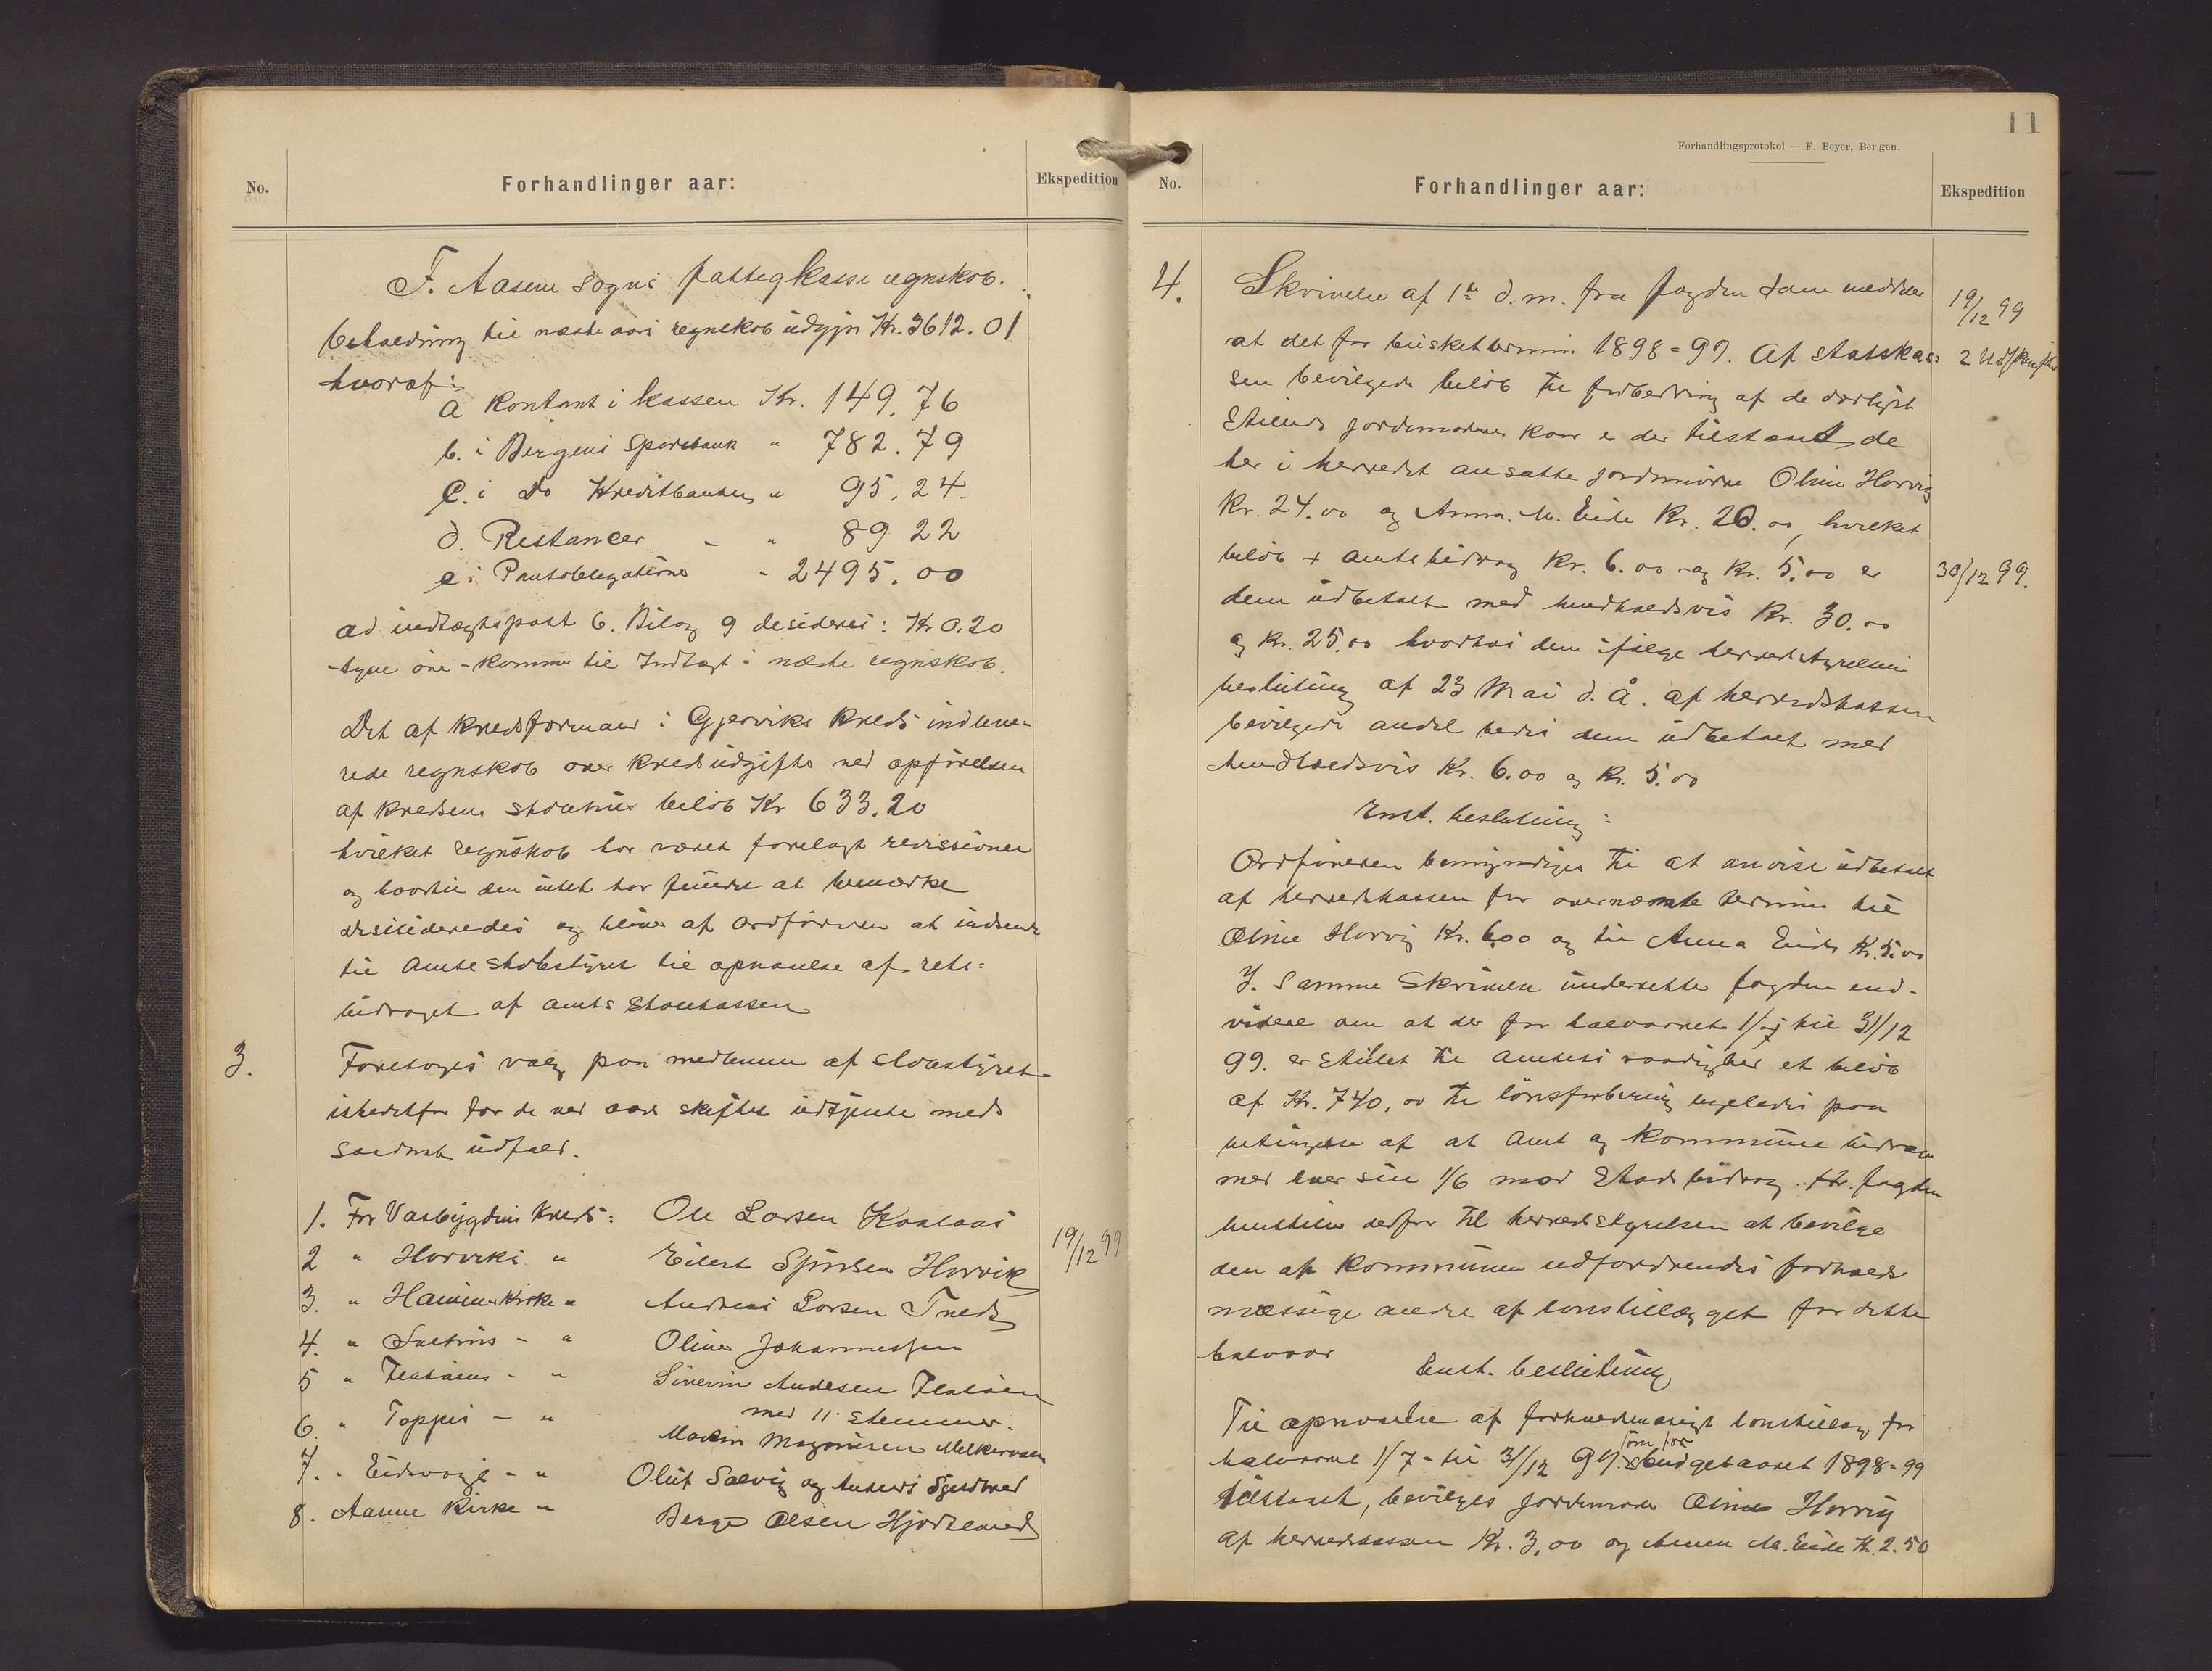 No.
Forhandlinger aar:
Ekspedition
F. Aasene Sogns fattigkasseregnskob.
beholdning til næste aars regnskob udgjør Kr. 3612.01
hvoraf:
a Kontant i kassen Kr. 149.76
b. i Bergens Sparebank " 782.79
c. i Do Kreditbanken " 95.24.
d. Restancer - " 89 22
e i Pantobligationer " 2495.00
ad indtægtspost 6. Bilag 9 desideres: Kr 0.20
-tyve öre- kommer til Indtægt i næste regnskob.
Det af kredsformand i Gjerviks Kreds indleve-
rede regnskob over kredsudgifter ved opførelsen
af kredsens skolehus beløb Kr 633.20
hvilket regnskob har været forelagt revissionen
og hvortil den intet har fundet at bemærke
desisideredes og bliver af ordføreren at indsende
til Amtsskolestyret til opnaaelse af refu-
bidraget af amts skolekassen
3.
Foretoges valg paa medlemmer af skolestyret
istedetfor for de ved aars skiftet udtjente med
saadant udfald.
1. For Vasbygdens Kreds: Ole Larsen Kaalaas
2 " Horviks " Eilert Sjursen Horvik
19/12 99
3. " Hammers Kirke " Andreas Larsen Tveds
4. " Saltnes - " Oliver Johannessen
5 " Flatøens - " Siverin Andesen Flatøen
med 11 Stemmer.
6. " Toppes - " Martin Magnusen Melkeraaen
7. " Eidsvaags - " Oluf Salvig og Anders
8. Aasene Kirke " Berge Olsen Hjortland
11
Forhandlingsprotokol — F. Beyer, Bergen.
No.
Forhandlinger aar:
Ekspedition
4.
Skrivelse af 1ste d.m. fra fogden som meddeler
19/12 99
at det for budsjettermin 1898-99. af statskas-
2 Udskrifter
sen bevilgede beløb til forbedring af de daarligst
stillede jordemødres kaar er der tilstaaet de
her i herredet ansatte jordmødre Oline Horvig
Kr. 24.00 og Anna. M. Eide Kr. 20.00, hvilket
beløb + amtsbidrag Kr. 6.00 og Kr. 5.00 er
30/12 99.
dem udbetalt med henholdsvis Kr. 30.00
og Kr. 25.00 hvorhos dem ifølge herredstyrelsens
beslutning af 23 Mai d. å. af herredskassen
bevilgede andel bedes dem udbetalt med
henholdsvis Kr. 6.00 og Kr. 5.00
Enst. beslutning:
Ordføreren bemyndiges til at anvise udbetalt
af herredskassen for overnæmte termin til
Oline Horvig Kr. 6.00 og til Anna Eide Kr. 5.00
I. Samme Skrivelse underrette fogden end-
videre om at der for halvaaret 1/7 til 31/12
99. er stillet til amtets raadighed et beløb
af Kr. 740.00 til lönsforbedring ligeledes paa
betingelse af at Amt og Kommune bidrager
med hver sin 1/6 mod Stadsbidrag. Hr. fogden
henstiller derfor til herredstyrelsen at bevilge
den af Kommunen udfordrendes forholds
mæssige andel af lönstillægget for dette
halvaar
Enst. beslutning
Til opnaaelse af forholdsmæsigt lönstillæg for
halvaaret 1/7 - til 31/12 99. som for budgetaaret 1898-99
tilstaaet, bevilges jordemoder Oline Horvig
af herredskassen Kr. 3,00 og Anna M. Eide Kr. 2.50